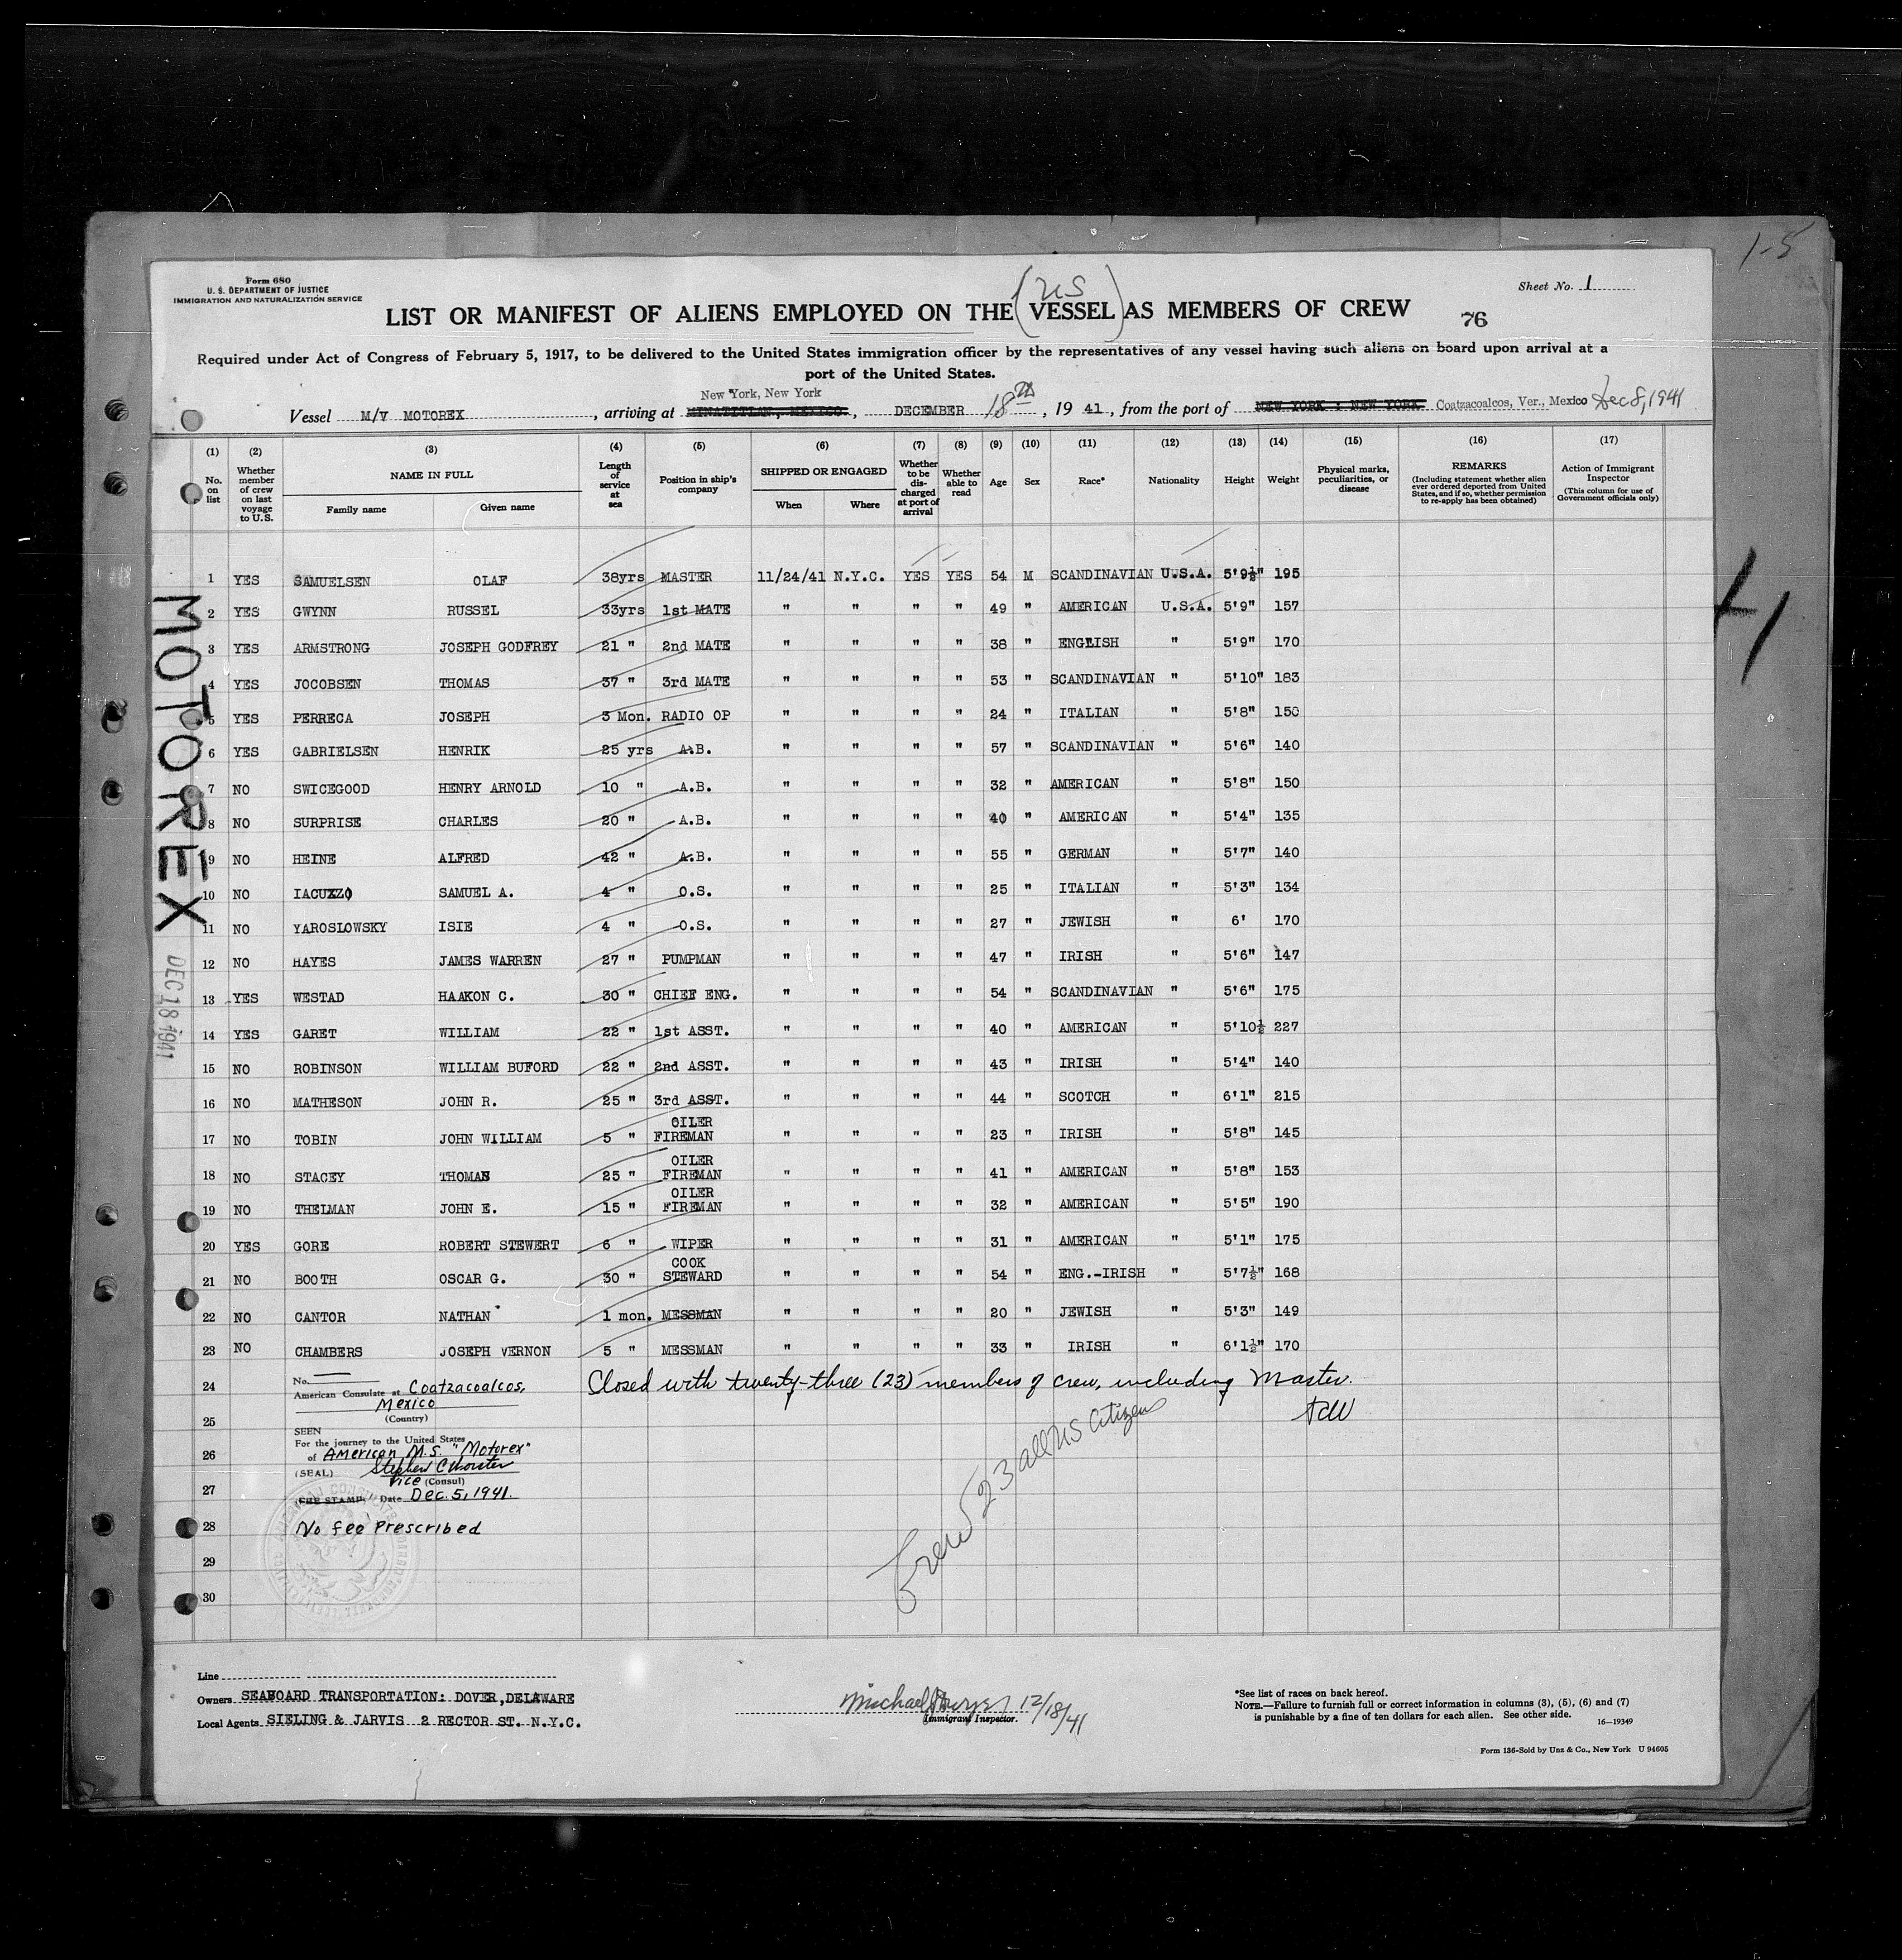 1-5
Form 680
U. S. DEPARTMENT OF JUSTICE
IMMIGRATION AND NATURALIZATION SERVICE
Sheet No. 1
US
LIST OR MANIFEST OF ALIENS EMPLOYED ON THE (VESSEL) AS MEMBERS OF CREW
76
Required under Act of Congress of February 5, 1917, to be delivered to the United States immigration officer by the representatives of any vessel having such aliens on board upon arrival at a
port of the United States.
New York, New York
Vessel M/V MOTOREX, arriving at MINATITLAN, MEXICO, DECEMBER 18th, 19 41, from the port of NEW YORK : NEW YORK Coatzacoalcos, Ver., Mexico Dec 8, 1941
(1) (2) (3) (4) (5) (6) (7) (8) (9) (10) (11) (12) (13) (14) (15) (16) (17)
No. on list
Whether member of crew on last voyage to U.S.
NAME IN FULL
Family name
Given name
Length of service at sea
Position in ship's company
SHIPPED OR ENGAGED
When
Where
Whether to be discharged at port of arrival
Whether able to read
Age
Sex
Race*
Nationality
Height
Weight
Physical marks, peculiarities, or disease
REMARKS
(Including statement whether alien ever ordered deported from United States, and if so, whether permission to re-apply has been obtained)
Action of Immigrant Inspector
(This column for use of Government officials only)
1 YES SAMUELSEN OLAF 38yrs MASTER 11/24/41 N.Y.C. YES YES 54 M SCANDINAVIAN U.S.A. 5'9½" 195
2 YES GWYNN RUSSEL 33yrs 1st MATE " " " " 49 " AMERICAN U.S.A. 5'9" 157
3 YES ARMSTRONG JOSEPH GODFREY 21 " 2nd MATE " " " " 38 " ENGLISH " 5'9" 170
4 YES JOCOBSEN THOMAS 37 " 3rd MATE " " " " 53 " SCANDINAVIAN " 5'10" 183
5 YES PERRECA JOSEPH 3 Mon. RADIO OP " " " " 24 " ITALIAN " 5'8" 150
6 YES GABRIELSEN HENRIK 25 yrs A.B. " " " " 57 " SCANDINAVIAN " 5'6" 140
7 NO SWICEGOOD HENRY ARNOLD 10 " A.B. " " " " 32 " AMERICAN " 5'8" 150
8 NO SURPRISE CHARLES 20 " A.B. " " " " 40 " AMERICAN " 5'4" 135
9 NO HEINE ALFRED 42 " A.B. " " " " 55 " GERMAN " 5'7" 140
10 NO IACUZZO SAMUEL A. 4 " O.S. " " " " 25 " ITALIAN " 5'3" 134
11 NO YAROSLOWSKY ISIE 4 " O.S. " " " " 27 " JEWISH " 6' 170
12 NO HAYES JAMES WARREN 27 " PUMPMAN " " " " 47 " IRISH " 5'6" 147
13 YES WESTAD HAAKON C. 30 " CHIEF ENG. " " " " 54 " SCANDINAVIAN " 5'6" 175
14 YES GARET WILLIAM 22 " 1st ASST. " " " " 40 " AMERICAN " 5'10½ 227
15 NO ROBINSON WILLIAM BUFORD 22 " 2nd ASST. " " " " 43 " IRISH " 5'4" 140
16 NO MATHESON JOHN R. 25 " 3rd ASST. " " " " 44 " SCOTCH " 6'1" 215
17 NO TOBIN JOHN WILLIAM 5 " OILER FIREMAN " " " " 23 " IRISH " 5'8" 145
18 NO STACEY THOMAS 25 " OILER FIREMAN " " " " 41 " AMERICAN " 5'8" 153
19 NO THELMAN JOHN E. 15 " OILER FIREMAN " " " " 32 " AMERICAN " 5'5" 190
20 YES GORE ROBERT STEWERT 6 " WIPER " " " " 31 " AMERICAN " 5'1" 175
21 NO BOOTH OSCAR G. 30 " COOK STEWARD " " " " 54 " ENG.-IRISH " 5'7½" 168
22 NO CANTOR NATHAN 1 mon. MESSMAN " " " " 20 " JEWISH " 5'3" 149
23 NO CHAMBERS JOSEPH VERNON 5 " MESSMAN " " " " 33 " IRISH " 6'1½" 170
24 Closed with twenty-three (23) members of crew, including Master.
25
26
27
28
29
30
No.
American Consulate at Coatzacoalcos,
Mexico
(Country)
SEEN
For the journey to the United States
of American M.S. "Motorex"
(SEAL)
Vice (Consul)
(FEE STAMP) Date Dec. 5, 1941.
No fee Prescribed
Crew 23 all US Citizens
MOTOREX
DEC 18 1941
Line
Owners SEABOARD TRANSPORTATION: DOVER, DELAWARE
Local Agents SIELING & JARVIS 2 RECTOR ST. N.Y.C.
Michael 12/18/41
Immigrant Inspector.
*See list of races on back hereof.
NOTE.—Failure to furnish full or correct information in columns (3), (5), (6) and (7)
is punishable by a fine of ten dollars for each alien. See other side.
16—19349
Form 136-Sold by Unz & Co., New York U 94605